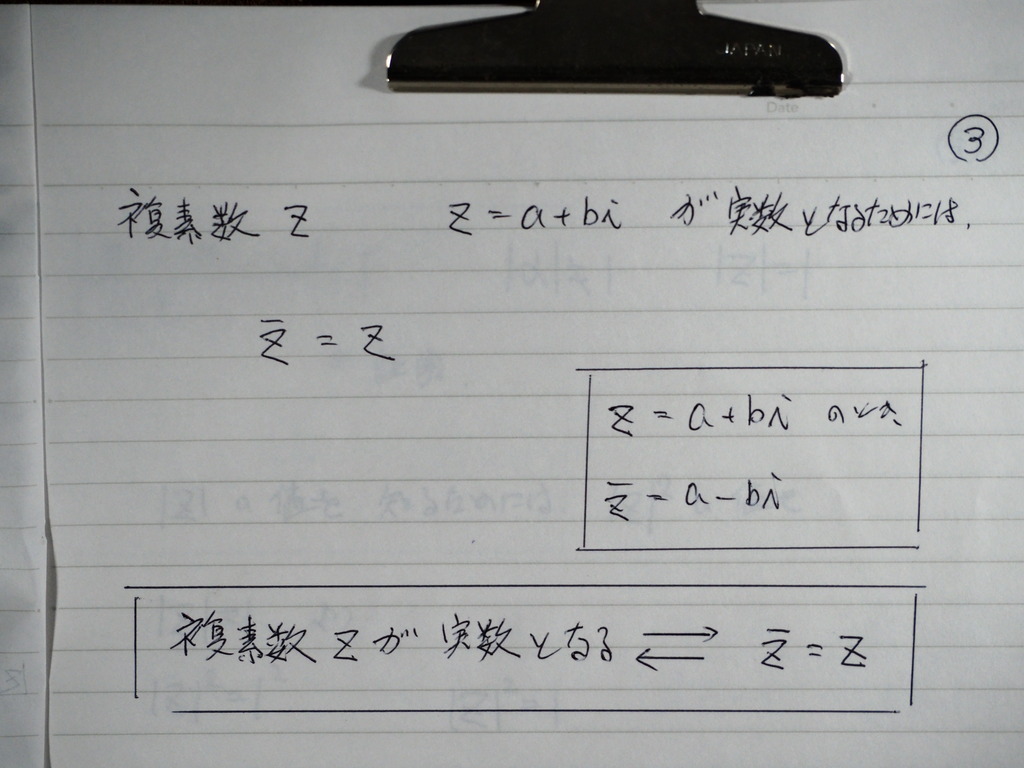 JAPAN
Date
③
複素数 z z = a + bi が 実数となるためには,
z̄ = z
z = a + bi のとき,
z̄ = a - bi
複素数 z が 実数となる ⇄ z̄ = z